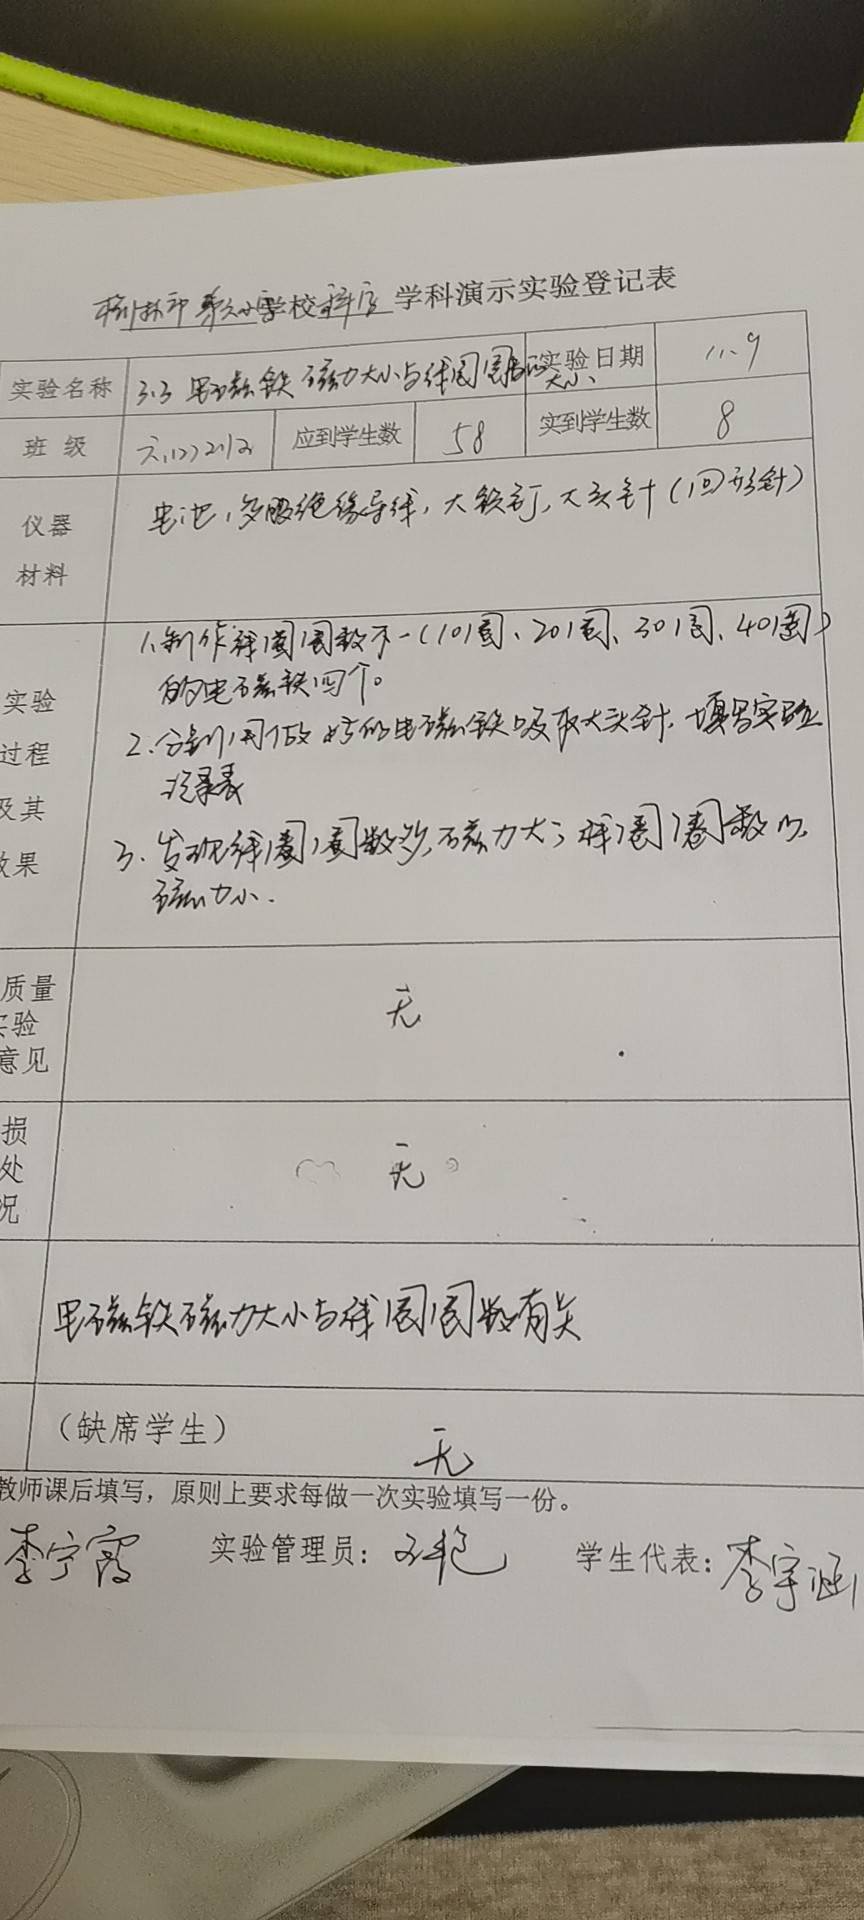 学校 学科演示实验登记表
实验名称 3.3 电磁铁磁力大小与线圈圈数 大小 实验日期 11.9
班级 六(1)(2) 应到学生数 58 实到学生数 8
仪器
材料
电池,多股绝缘导线,大铁钉,大头针(回形针)
1.制作线圈圈数不一(10圈、20圈、30圈、40圈)
的电磁铁四个。
实验
过程
及其
效果
2.分别用做好的电磁铁吸取大头针,填写实验
记录表
3.发现线圈圈数多,磁力大;线圈圈数少,
磁力小.
质量
实验
意见
无
损
处
况
无
电磁铁磁力大小与线圈圈数有关
(缺席学生)
无
教师课后填写,原则上要求每做一次实验填写一份。
李宁霞 实验管理员: 学生代表:李宇涵